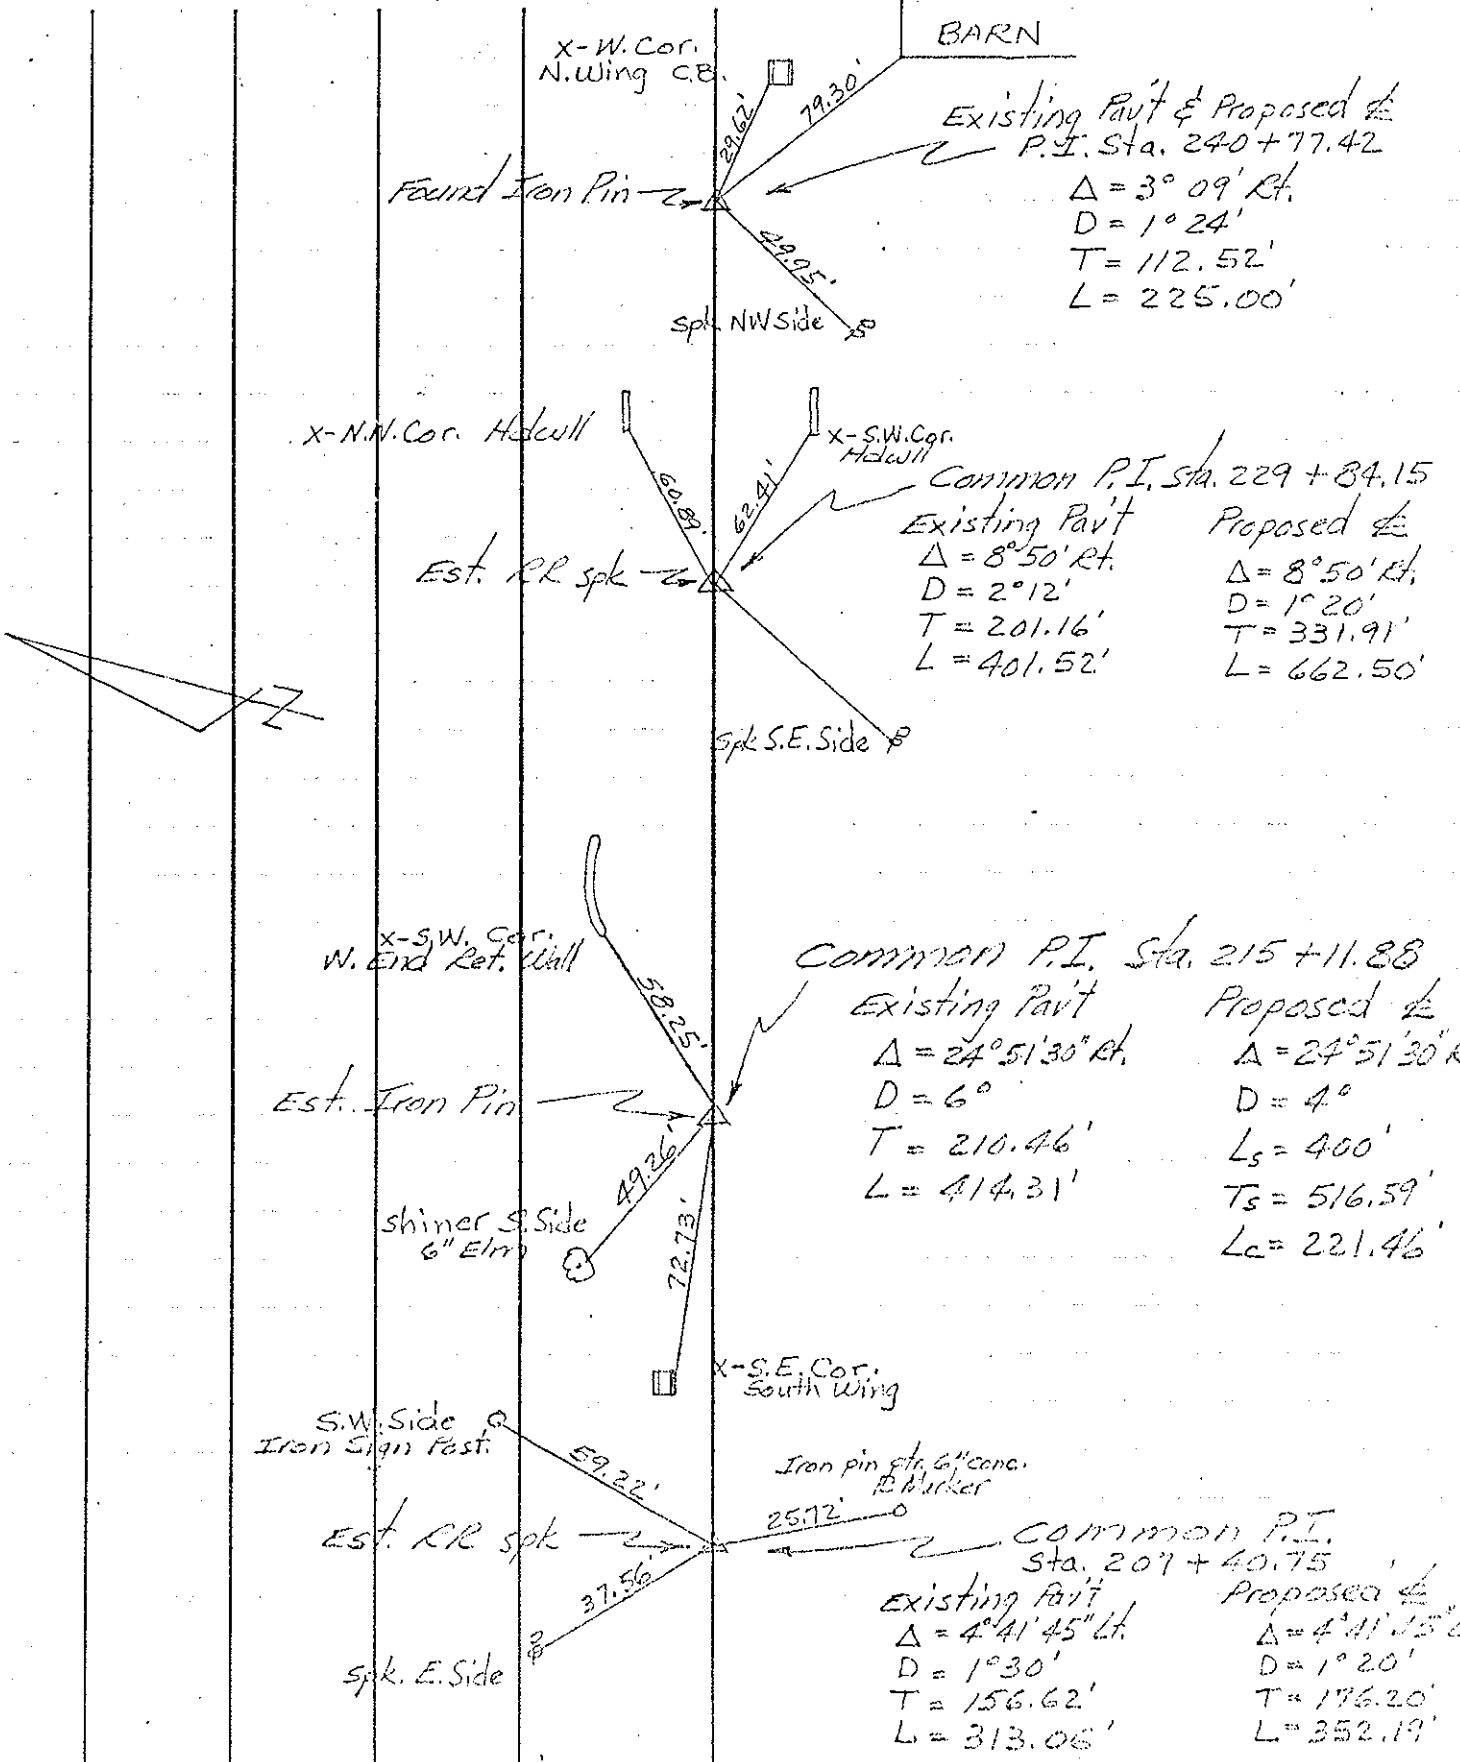 BARN
X-W. Cor.
N. Wing C.B.
29.62'
79.30'
Existing Pav't & Proposed ℄
P.I. Sta. 240+77.42
Δ = 3° 09' Rt.
D = 1° 24'
T = 112.52'
L = 225.00'
Found Iron Pin
49.95'
spk. NW Side
X-N.W. Cor. Hdwll
X-S.W. Cor.
Hdwll
60.89'
62.41'
Common P.I. Sta. 229+84.15
Existing Pav't
Δ = 8° 50' Rt.
D = 2° 12'
T = 201.16'
L = 401.52'
Proposed ℄
Δ = 8° 50' Rt.
D = 1° 20'
T = 331.91'
L = 662.50'
Est. RR spk
Spk S.E. Side
X-S.W. Cor.
W. End Ret. Wall
58.25'
Common P.I. Sta. 215+11.88
Existing Pav't
Δ = 24° 51' 30" Rt.
D = 6°
T = 210.46'
L = 414.31'
Proposed ℄
Δ = 24° 51' 30"
D = 4°
Ls = 400'
Ts = 516.59'
Lc = 221.46'
Est. Iron Pin
49.26'
72.73'
shiner S. Side
6" Elm
X-S.E. Cor.
South Wing
S.W. Side
Iron Sign Post.
59.22'
Iron pin ctr. 6" conc.
Marker
25.72'
Est. RR spk
Common P.I.
Sta. 207+40.75
37.56'
spk. E. Side
Existing Pav't
Δ = 4° 41' 45" Lt.
D = 1° 30'
T = 156.62'
L = 313.06'
Proposed ℄
Δ = 4° 41' 45"
D = 1° 20'
T = 176.20'
L = 352.19'